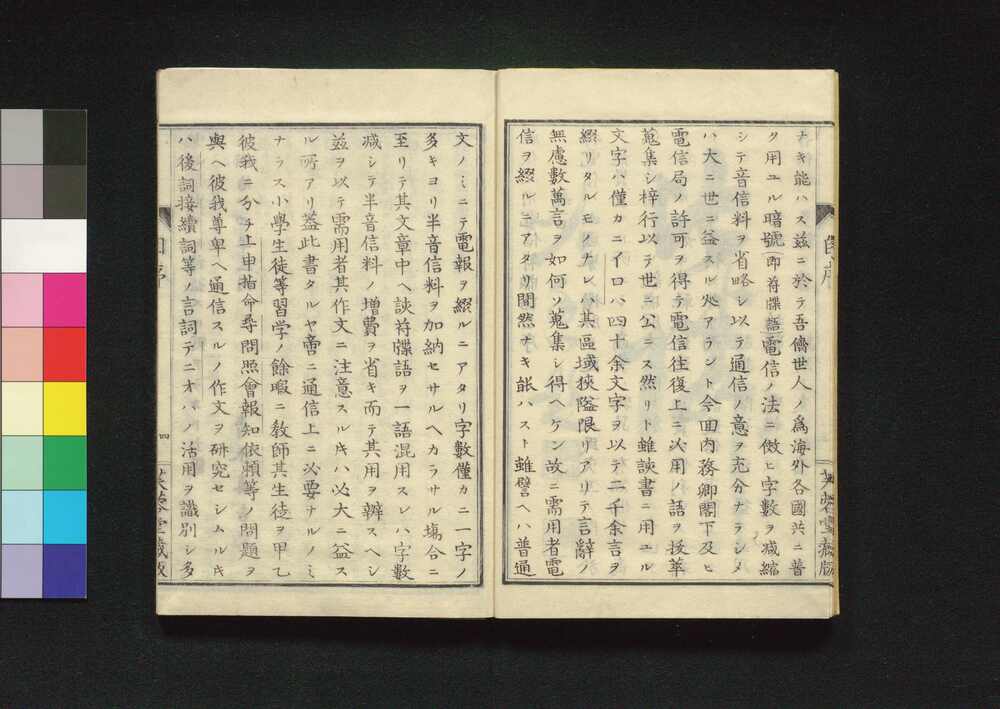 ナキ能ハス茲ニ於テ吾儕世人ノ爲海外各國共ニ普
ク用ユル暗號即符牒語電信ノ法ニ倣ヒ字數ヲ减縮
シテ音信料ヲ省略シ以テ通信ノ意ヲ充分ナラシメ
ハ大ニ世ニ益スル処アラント今囬内務卿閣下及ヒ
電信局ノ許可ヲ得テ電信往復上ニ必用ノ語ヲ抜萃
蒐集シ梓行以テ世ニ公ニス然リト雖該書ニ用ユル
文字ハ僅カニイロハ四十余文字ヲ以テ二千余言ヲ
綴リタルモノナレハ其區域狹隘限リアリテ言辭ノ
無慮數萬言ヲ如何ソ蒐集シ得ヘケン故ニ需用者電
信ヲ綴ルニアタリ間然ナキ能ハスト雖譬ヘハ普通
文ノミニテ電報ヲ綴ルニアタリ字數僅カニ一字ノ
多キヨリ半音信料ヲ加納セサルヘカラサル塲合ニ
至リテ其文章中ヘ該符牒語ヲ一語混用スレハ字數
减シテ半音信料ノ增費ヲ省キ而テ其用ヲ辨スヘシ
茲ヲ以テ需用者其作文ニ注意スルキハ必大ニ益ス
ル所アリ葢此書タルヤ啻ニ通信上ニ必要ナルノミ
ナラス小學生徒等習学ノ餘暇ニ敎師其生徒ヲ甲乙
彼我ニ分チ上申指命尋問照會報知依頼等ノ問題ヲ
與ヘ彼我尊卑ヘ通信スルノ作文ヲ研究セシムルキ
ハ後詞接續詞等ノ言詞テニオハノ活用ヲ識別シ多
四
芙蓉堂藏版